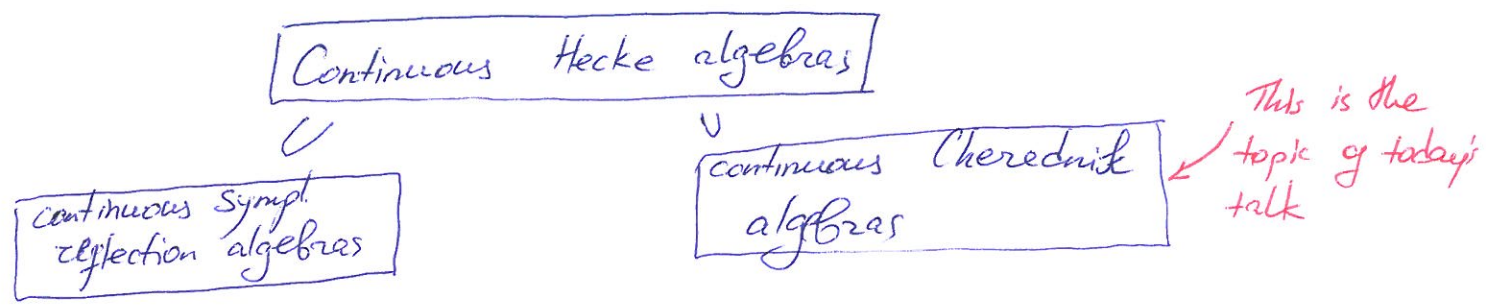 Continuous Hecke algebras
∪ ∪
continuous Sympl.
reflection algebras
continuous Cherednik
algebras
This is the
topic of today's
talk